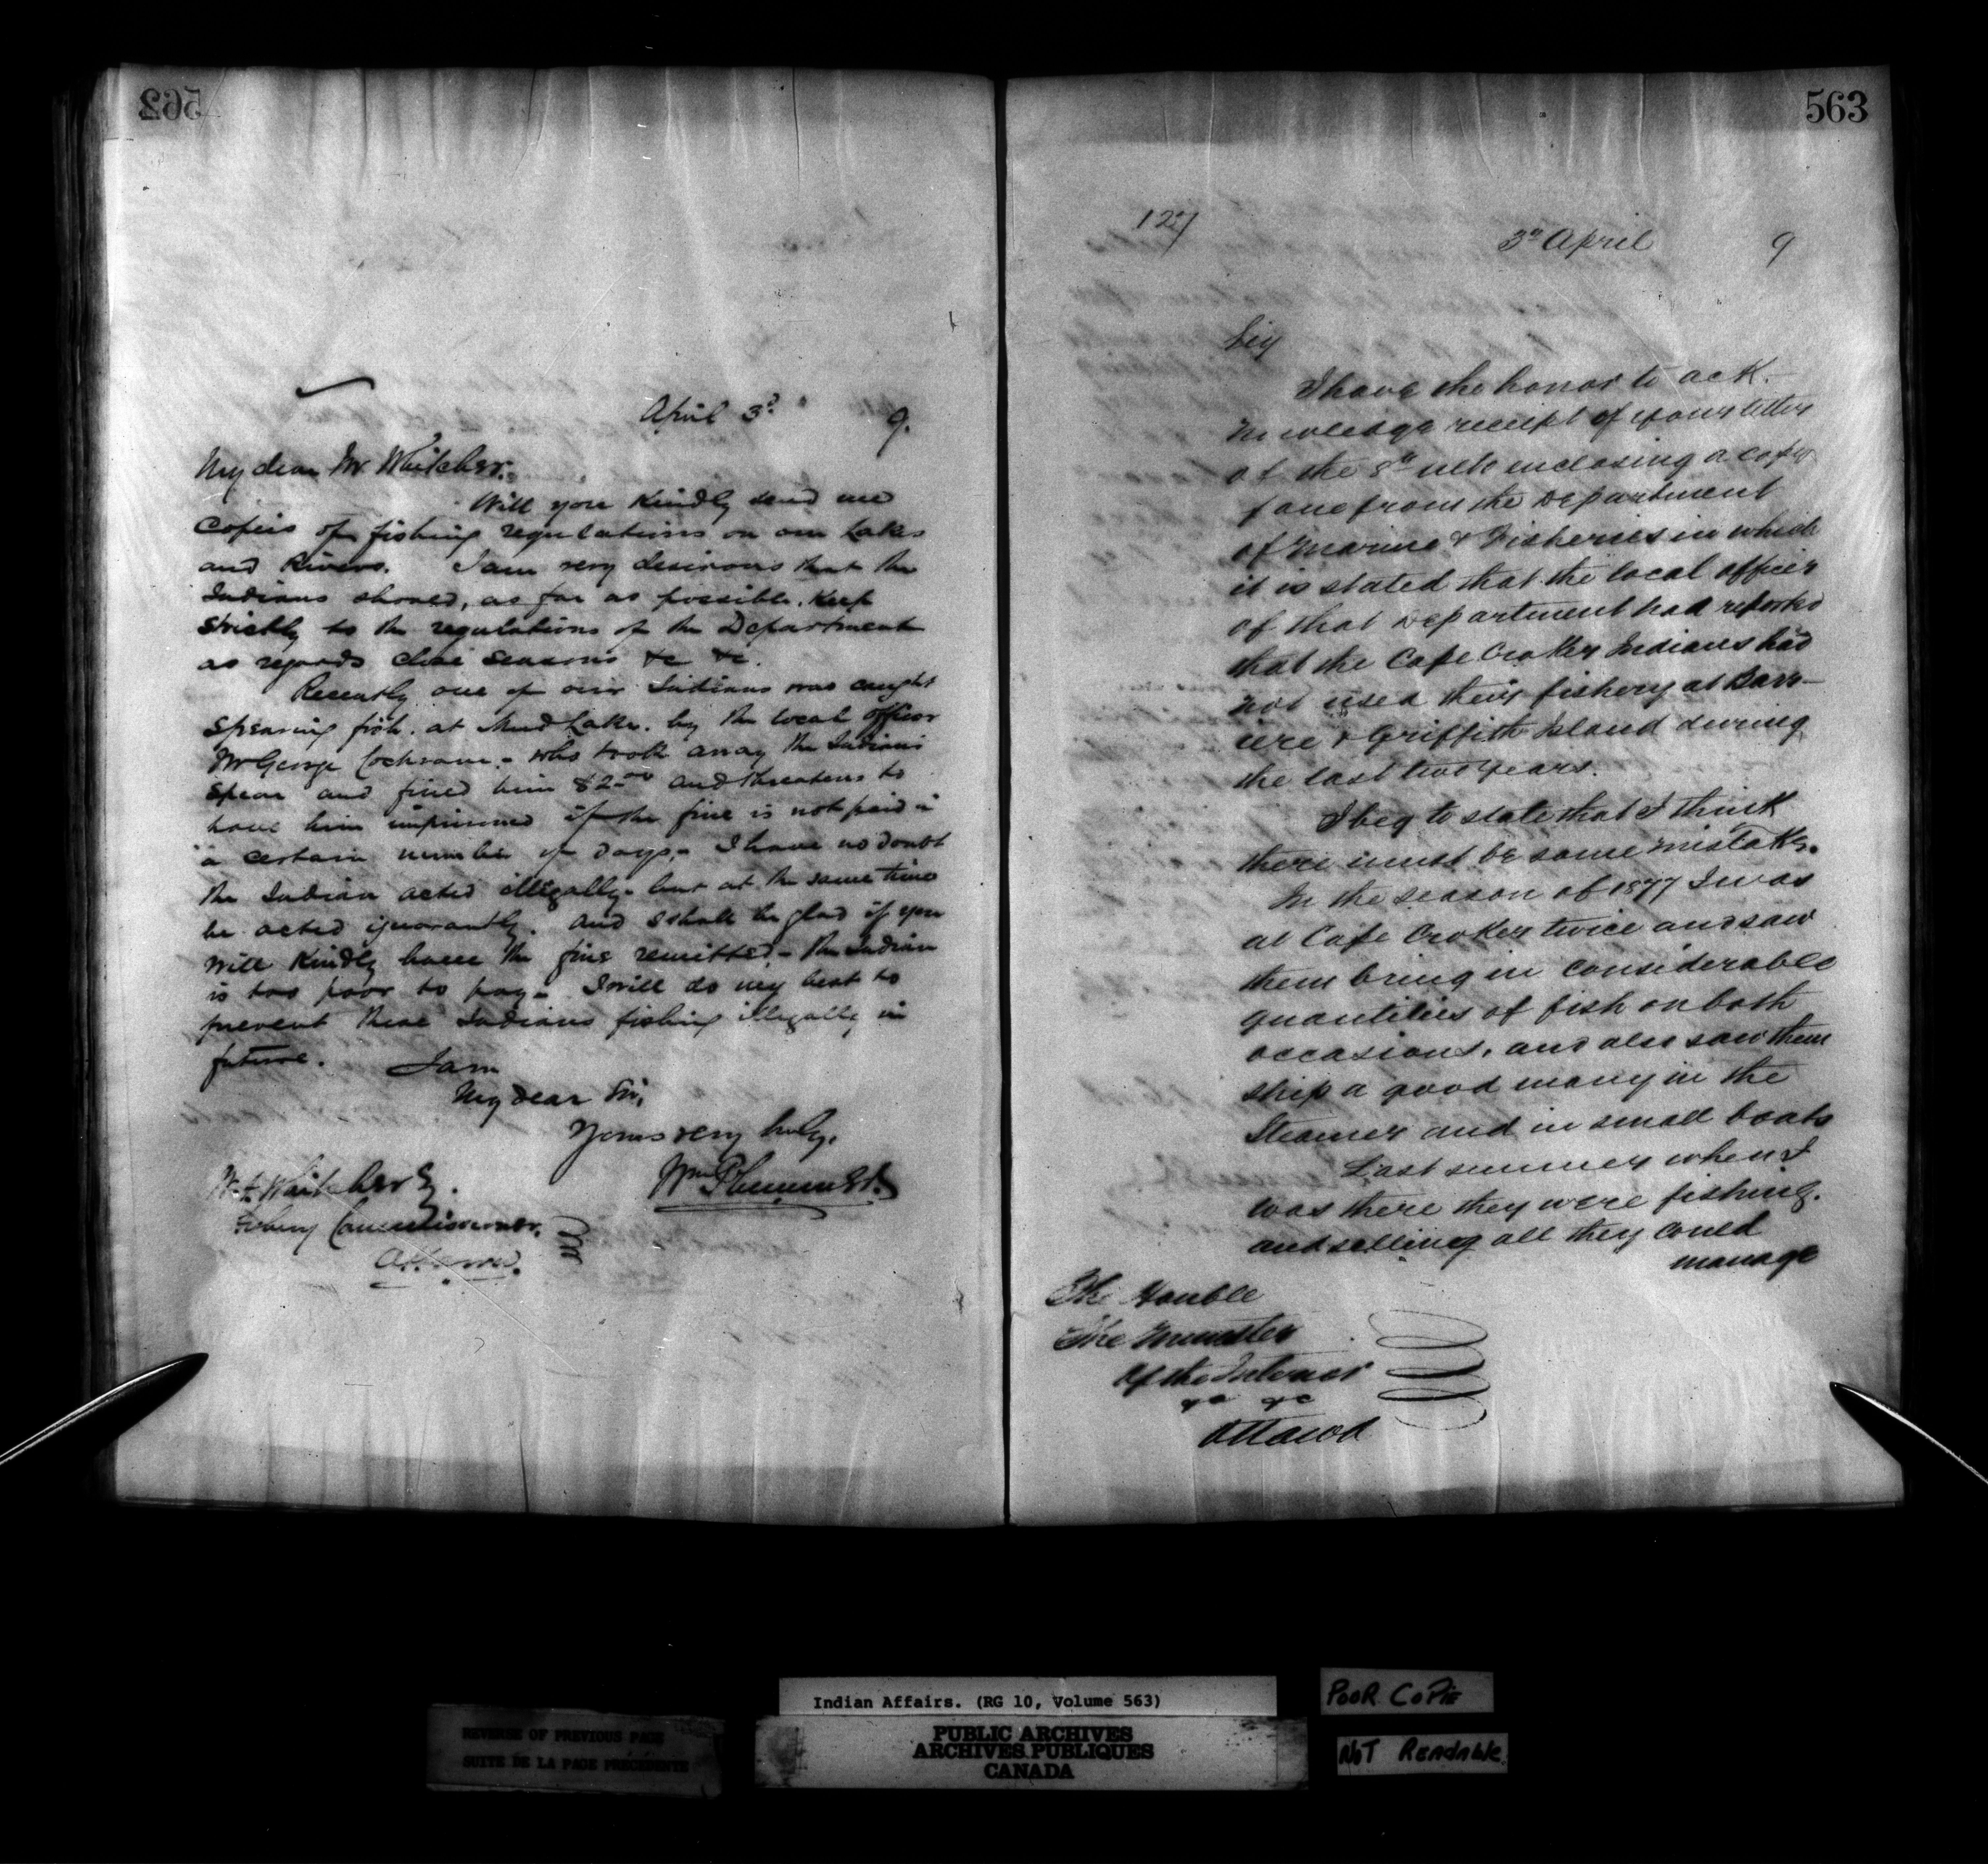 562
April 3d 9.
My dear Mr Whitcher.
Will you Kindly send me
Copies of fishing regulations on our Lakes
and Rivers. I am very desirous that the
Indians should, as far as possible, Keep
strictly to the regulations of the Department
as regards close seasons &c &c.
Recently one of our Indians was caught
spearing fish. at Mud Lake. by the local officer
Mr George Cochrane. - who took away the Indians
spear and fined him $2.00 and threatens to
have him imprisoned if the fine is not paid in
a certain number of days, - I have no doubt
the Indian acted illegally - but at the same time
he acted ignorantly. and I shall be glad if you
will Kindly have the fine remitted - the Indian
is too poor to pay - I will do my best to
prevent these Indians fishing illegally in
future. I am
My dear Sir,
Yours very truly.
Wm Plummer
W. F. Whitcher Esq.
Fishery Commissioner.
Ottawa.
563
127
3d April 9
Sir
I have the honor to ack-
nowledge receipt of your letter
of the 8th ulto enclosing a copy
f one from the Department
of Marine & Fisheries in which
it is stated that the local officer
of that Department had reported
that the Cape Croker Indians had
not used their fishery at Barr-
iere & Griffith Island during
the last two years.
I beg to state that I think
there must be some mistake.
In the season of 1877 I was
at Cape Croker twice and saw
them bring in considerable
quantities of fish on both
occasions. and also saw them
ship a good many in the
Steamer and in small boats
Last summer when I
was there they were fishing.
and selling all they could
manage
The Honble
The Minister
of the Interior
&c &c
Ottawa
Indian Affairs. (RG 10, Volume 563)
PUBLIC ARCHIVES
ARCHIVES PUBLIQUES
CANADA
REVERSE OF PREVIOUS PAGE
SUITE DE LA PAGE PRÉCÉDENTE
POOR COPIE
NOT READABLE